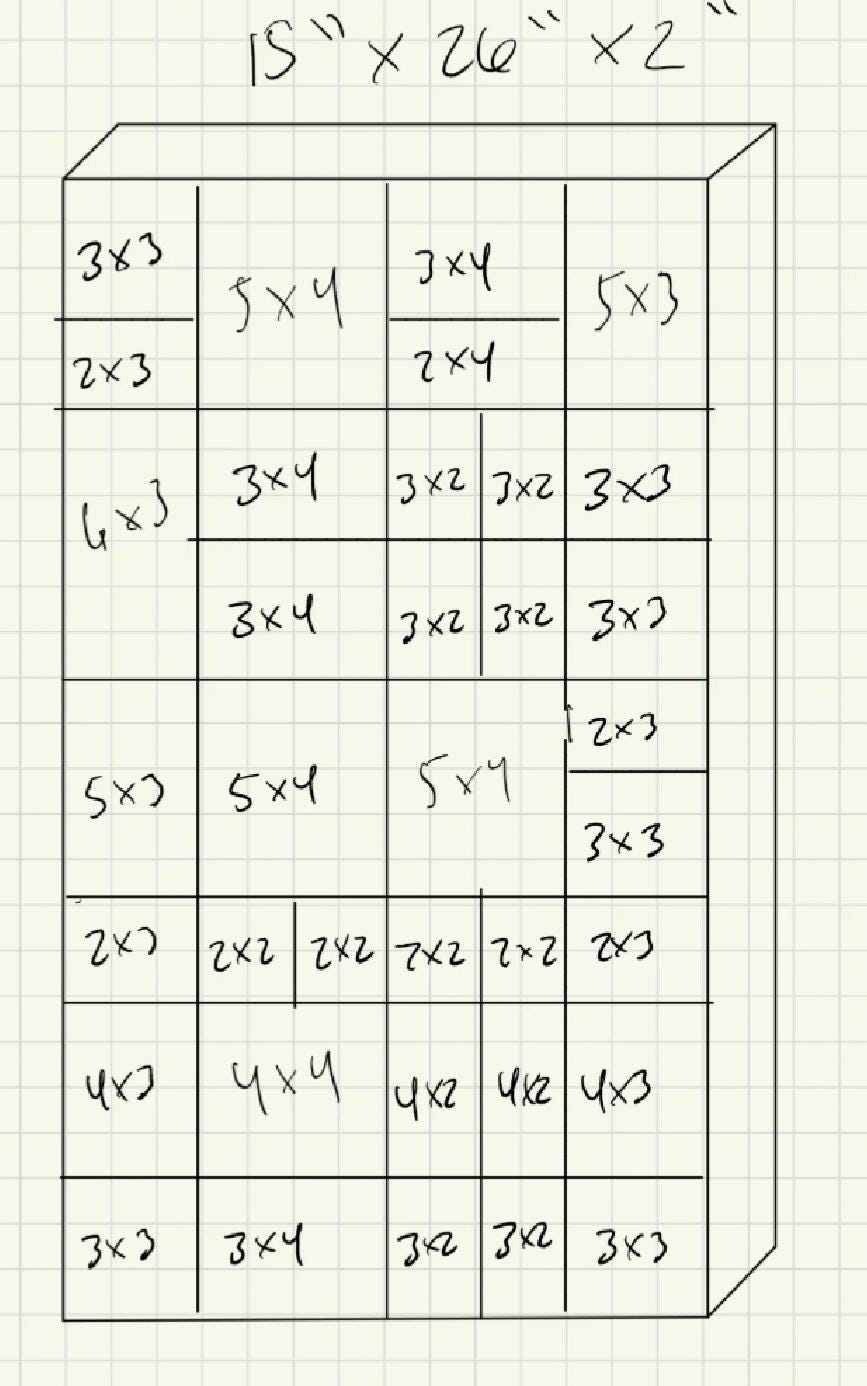 15" x 26" x 2"
3x3 5x4 3x4 5x3
2x3 2x4
6x3 3x4 3x2 3x2 3x3
3x4 3x2 3x2 3x3
2x3
5x3 5x4 5x4
3x3
2x3 2x2 2x2 2x2 2x2 2x3
4x3 4x4 4x2 4x2 4x3
3x3 3x4 3x2 3x2 3x3